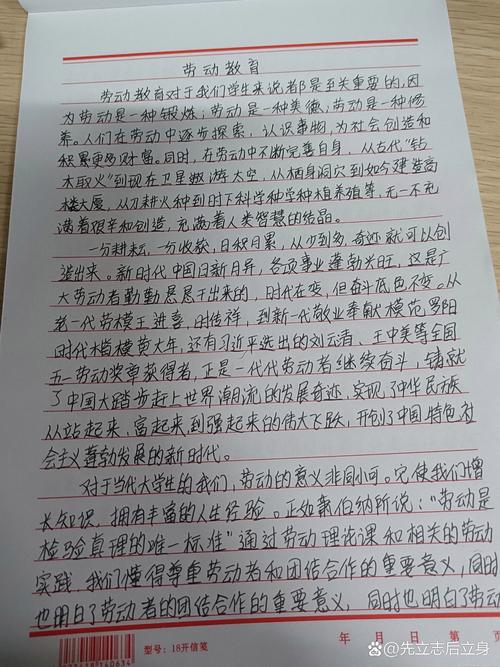 劳动教育
劳动教育对于我们学生来说都是至关重要的,因
为劳动是一种锻炼;劳动是一种美德;劳动是一种修
养。人们在劳动中逐步探索、认识事物,为社会创造和
积累更多财富。同时,在劳动中不断完善自身、从古代“钻
木取火”到现在卫星遨游太空,从栖身洞穴到如今建造高
楼大厦,从刀耕火种到时下科学种学种植养殖等,无一不充
满着艰辛和创造,充满着人类智慧的结晶。
一分耕耘,一分收获,日积月累,从少到多,奇迹就可以创
造出来。新时代中国日新月异,各项事业蓬勃兴旺,这是广
大劳动者勤勤恳恳干出来的,时代在变,但奋斗底色不变。从
老一代劳模王进喜,时传祥,到新一代敬业奉献模范罗阳
时代楷模黄大年,还有习近平选出的刘云清、王中美等全国
五一劳动奖章获得者,正是一代代劳动者继续奋斗,铸就
了中国大踏步赶上世界潮流的发展奇迹,实现了中华民族
从站起来、富起来到强起来的伟大飞跃,开创了中国特色社
会主义蓬勃发展的新时代。
对于当代大学生的我们,劳动的意义非同小可。它使我们增
长知识,拥有丰富的人生经验。正如萧伯纳所说:“劳动是
检验真理的唯一标准”通过劳动理论课和相关的劳动
实践,我们懂得尊重劳动者和团结合作的重要意义,同时
也明白了劳动者的团结合作的重要意义,同时也明白了劳动
型号:18开信笺 年 月 日 第 页
@先立志后立身